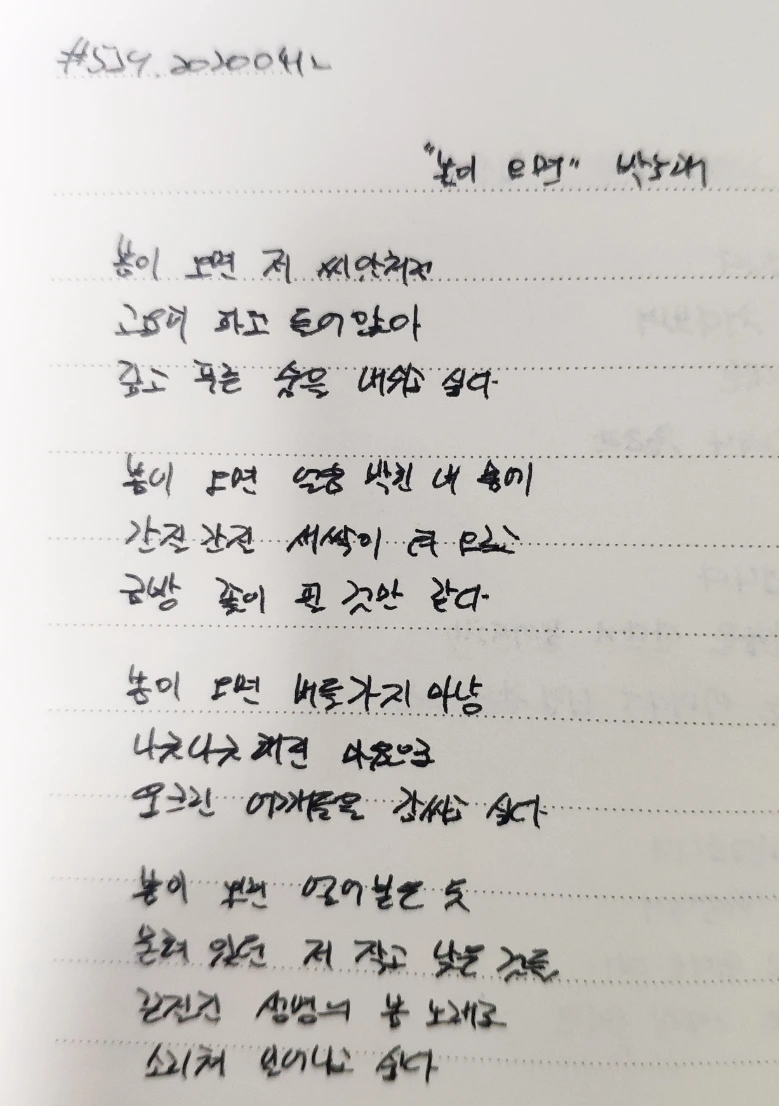 #SJY. 20200412
"봄이 오면" 박노해
봄이 오면 저 씨앗처럼
고요히 하고 들어앉아
깊고 푸른 숨을 내쉬고 싶다
봄이 오면 얼음 박힌 내 몸에
간질간질 새싹이 터 오르고
금방 꽃이 핀 것만 같다
봄이 오면 버들가지 마냥
낭창낭창 해진 마음으로
웅크린 어깨들을 감싸고 싶다
봄이 오면 얼어붙은 듯
눌려 있던 저 작고 낮은 것들
끈질긴 생명의 봄 노래로
소리쳐 일어나고 싶다